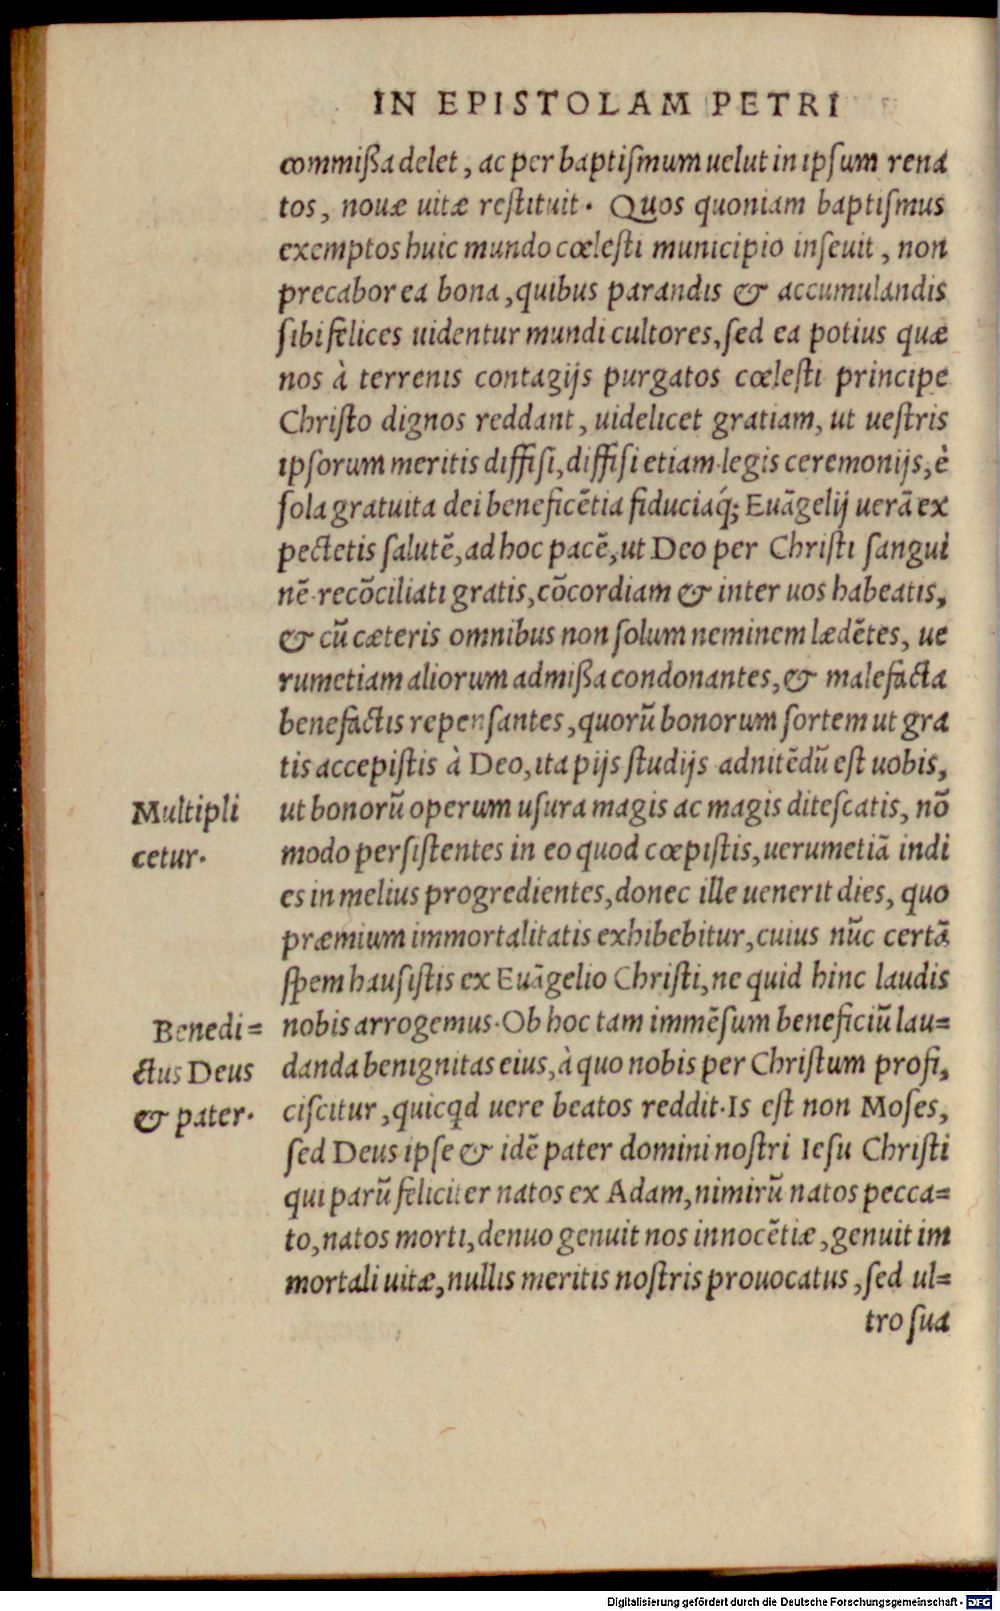 IN EPISTOLAM PETRI
commißa delet, ac per baptiſmum uelut in ipſum rena
tos, nouæ uitæ reſtituit. Quos quoniam baptiſmus
exemptos huic mundo cœleſti municipio inſeuit, non
precabor ea bona, quibus parandis & accumulandis
ſibi felices uidentur mundi cultores, ſed ea potius quæ
nos à terrenis contagijs purgatos cœleſti principe
Chriſto dignos reddant, uidelicet gratiam, ut ueſtris
ipſorum meritis diffiſi, diffiſi etiam legis ceremonijs, è
ſola gratuita dei beneficẽtia fiduciaq́; Euãgelij uerã ex
pectetis ſalutẽ, ad hoc pacẽ, ut Deo per Chriſti ſangui
nẽ recõciliati gratis, cõcordiam & inter uos habeatis,
& cũ cæteris omnibus non ſolum neminem lædẽtes, ue
rumetiam aliorum admißa condonantes, & malefacta
benefactis repenſantes, quorũ bonorum ſortem ut gra
tis accepiſtis à Deo, ita pijs ſtudijs adnitẽdũ eſt uobis,
Multipli
cetur.
ut bonorũ operum uſura magis ac magis diteſcatis, nõ
modo perſiſtentes in eo quod cœpiſtis, uerumetiã indi
es in melius progredientes, donec ille uenerit dies, quo
præmium immortalitatis exhibebitur, cuius nũc certã
ſpem hauſiſtis ex Euãgelio Chriſti, ne quid hinc laudis
Benedi=
ctus Deus
& pater.
nobis arrogemus. Ob hoc tam immẽſum beneficiũ lau=
danda benignitas eius, à quo nobis per Chriſtum profi,
ciſcitur, quicqd uere beatos reddit. Is eſt non Moſes,
ſed Deus ipſe & idẽ pater domini noſtri Ieſu Chriſti
qui parũ feliciter natos ex Adam, nimirũ natos pecca=
to, natos morti, denuo genuit nos innocẽtiæ, genuit im
mortali uitæ, nullis meritis noſtris prouocatus, ſed ul=
tro ſua
Digitalisierung gefördert durch die Deutsche Forschungsgemeinschaft - DFG